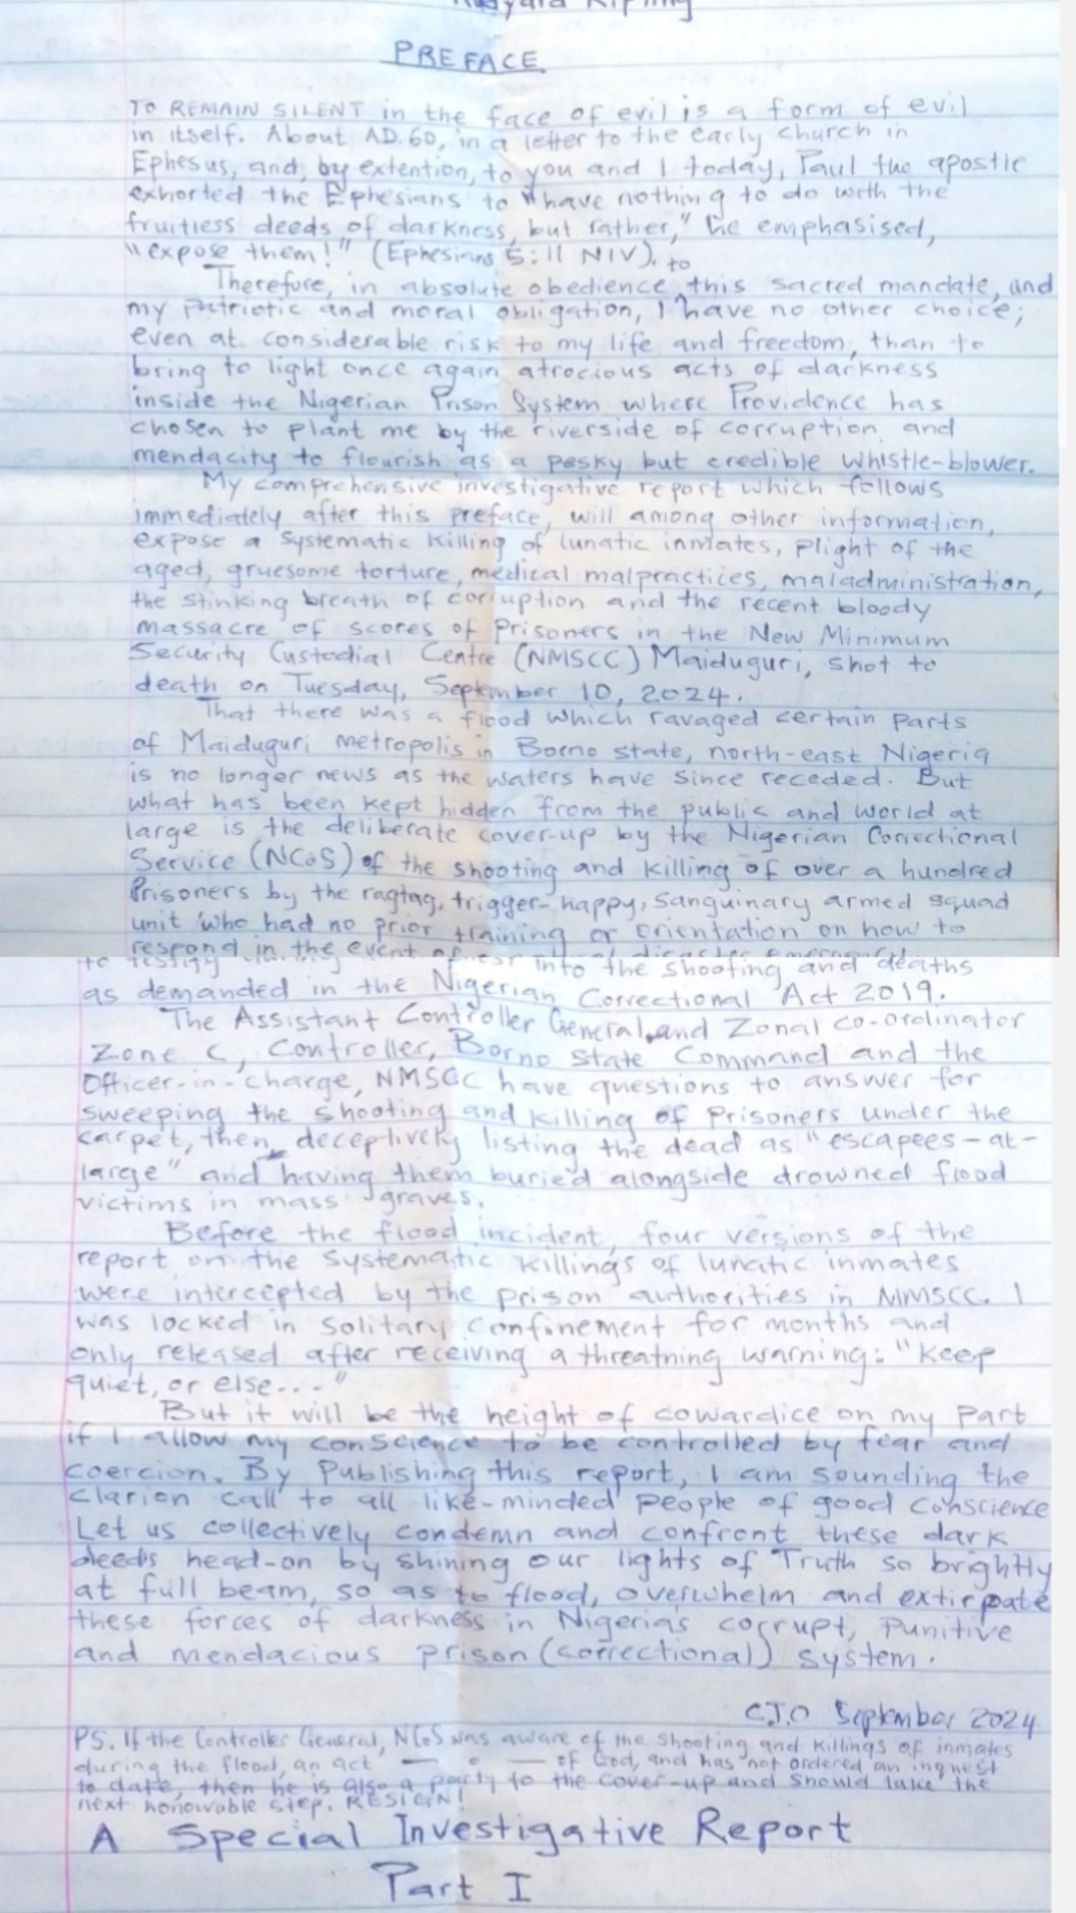 Rudyard Kipling
PREFACE
TO REMAIN SILENT in the face of evil is a form of evil
in itself. About AD.60, in a letter to the early church in
Ephesus, and, by extention, to you and I today, Paul the apostle
exhorted the Ephesians to "have nothing to do with the
fruitless deeds of darkness, but rather," he emphasised,
"expose them!" (Ephesians 5:11 NIV).
Therefore, in absolute obedience to this sacred mandate, and
my patriotic and moral obligation, I have no other choice;
even at considerable risk to my life and freedom, than to
bring to light once again atrocious acts of darkness
inside the Nigerian Prison System where Providence has
chosen to plant me by the riverside of corruption and
mendacity to flourish as a pesky but credible whistle-blower.
My comprehensive investigative report which follows
immediately after this preface, will among other information,
expose a systematic killing of lunatic inmates, plight of the
aged, gruesome torture, medical malpractices, maladministration,
the stinking breath of corruption and the recent bloody
massacre of scores of prisoners in the New Minimum
Security Custodial Centre (NMSCC) Maiduguri, shot to
death on Tuesday, September 10, 2024.
That there was a flood which ravaged certain parts
of Maiduguri metropolis in Borno state, north-east Nigeria
is no longer news as the waters have since receded. But
what has been kept hidden from the public and world at
large is the deliberate cover-up by the Nigerian Correctional
Service (NCoS) of the shooting and killing of over a hundred
Prisoners by the ragtag, trigger-happy, sanguinary armed squad
unit who had no prior training or orientation on how to
respond in the event of
to testify into the shooting and deaths
as demanded in the Nigerian Correctional Act 2019.
The Assistant Controller General and Zonal co-ordinator
Zone C, Controller, Borno State Command and the
Officer-in-charge, NMSCC have questions to answer for
sweeping the shooting and killing of Prisoners under the
carpet, then deceptively listing the dead as "escapees-at-
large" and having them buried alongside drowned flood
victims in mass graves.
Before the flood incident, four versions of the
report on the systematic killings of lunatic inmates
were intercepted by the prison authorities in NMSCC. I
was locked in solitary confinement for months and
only released after receiving a threatning warning: "Keep
quiet, or else---"
But it will be the height of cowardice on my part
if I allow my conscience to be controlled by fear and
coercion. By Publishing this report, I am sounding the
clarion call to all like-minded people of good conscience
Let us collectively condemn and confront these dark
deeds head-on by shining our lights of Truth so brightly
at full beam, so as to flood, overwhelm and extirpate
these forces of darkness in Nigeria's corrupt, punitive
and mendacious prison (correctional) system.
C.J.O September 2024
PS. If the Controller General, NCoS was aware of the shooting and killings of inmates
during the flood, an act — o — of God, and has not ordered an inquest
to date, then he is also a party to the cover-up and should take the
next honourable step. RESIGN!
A Special Investigative Report
Part I